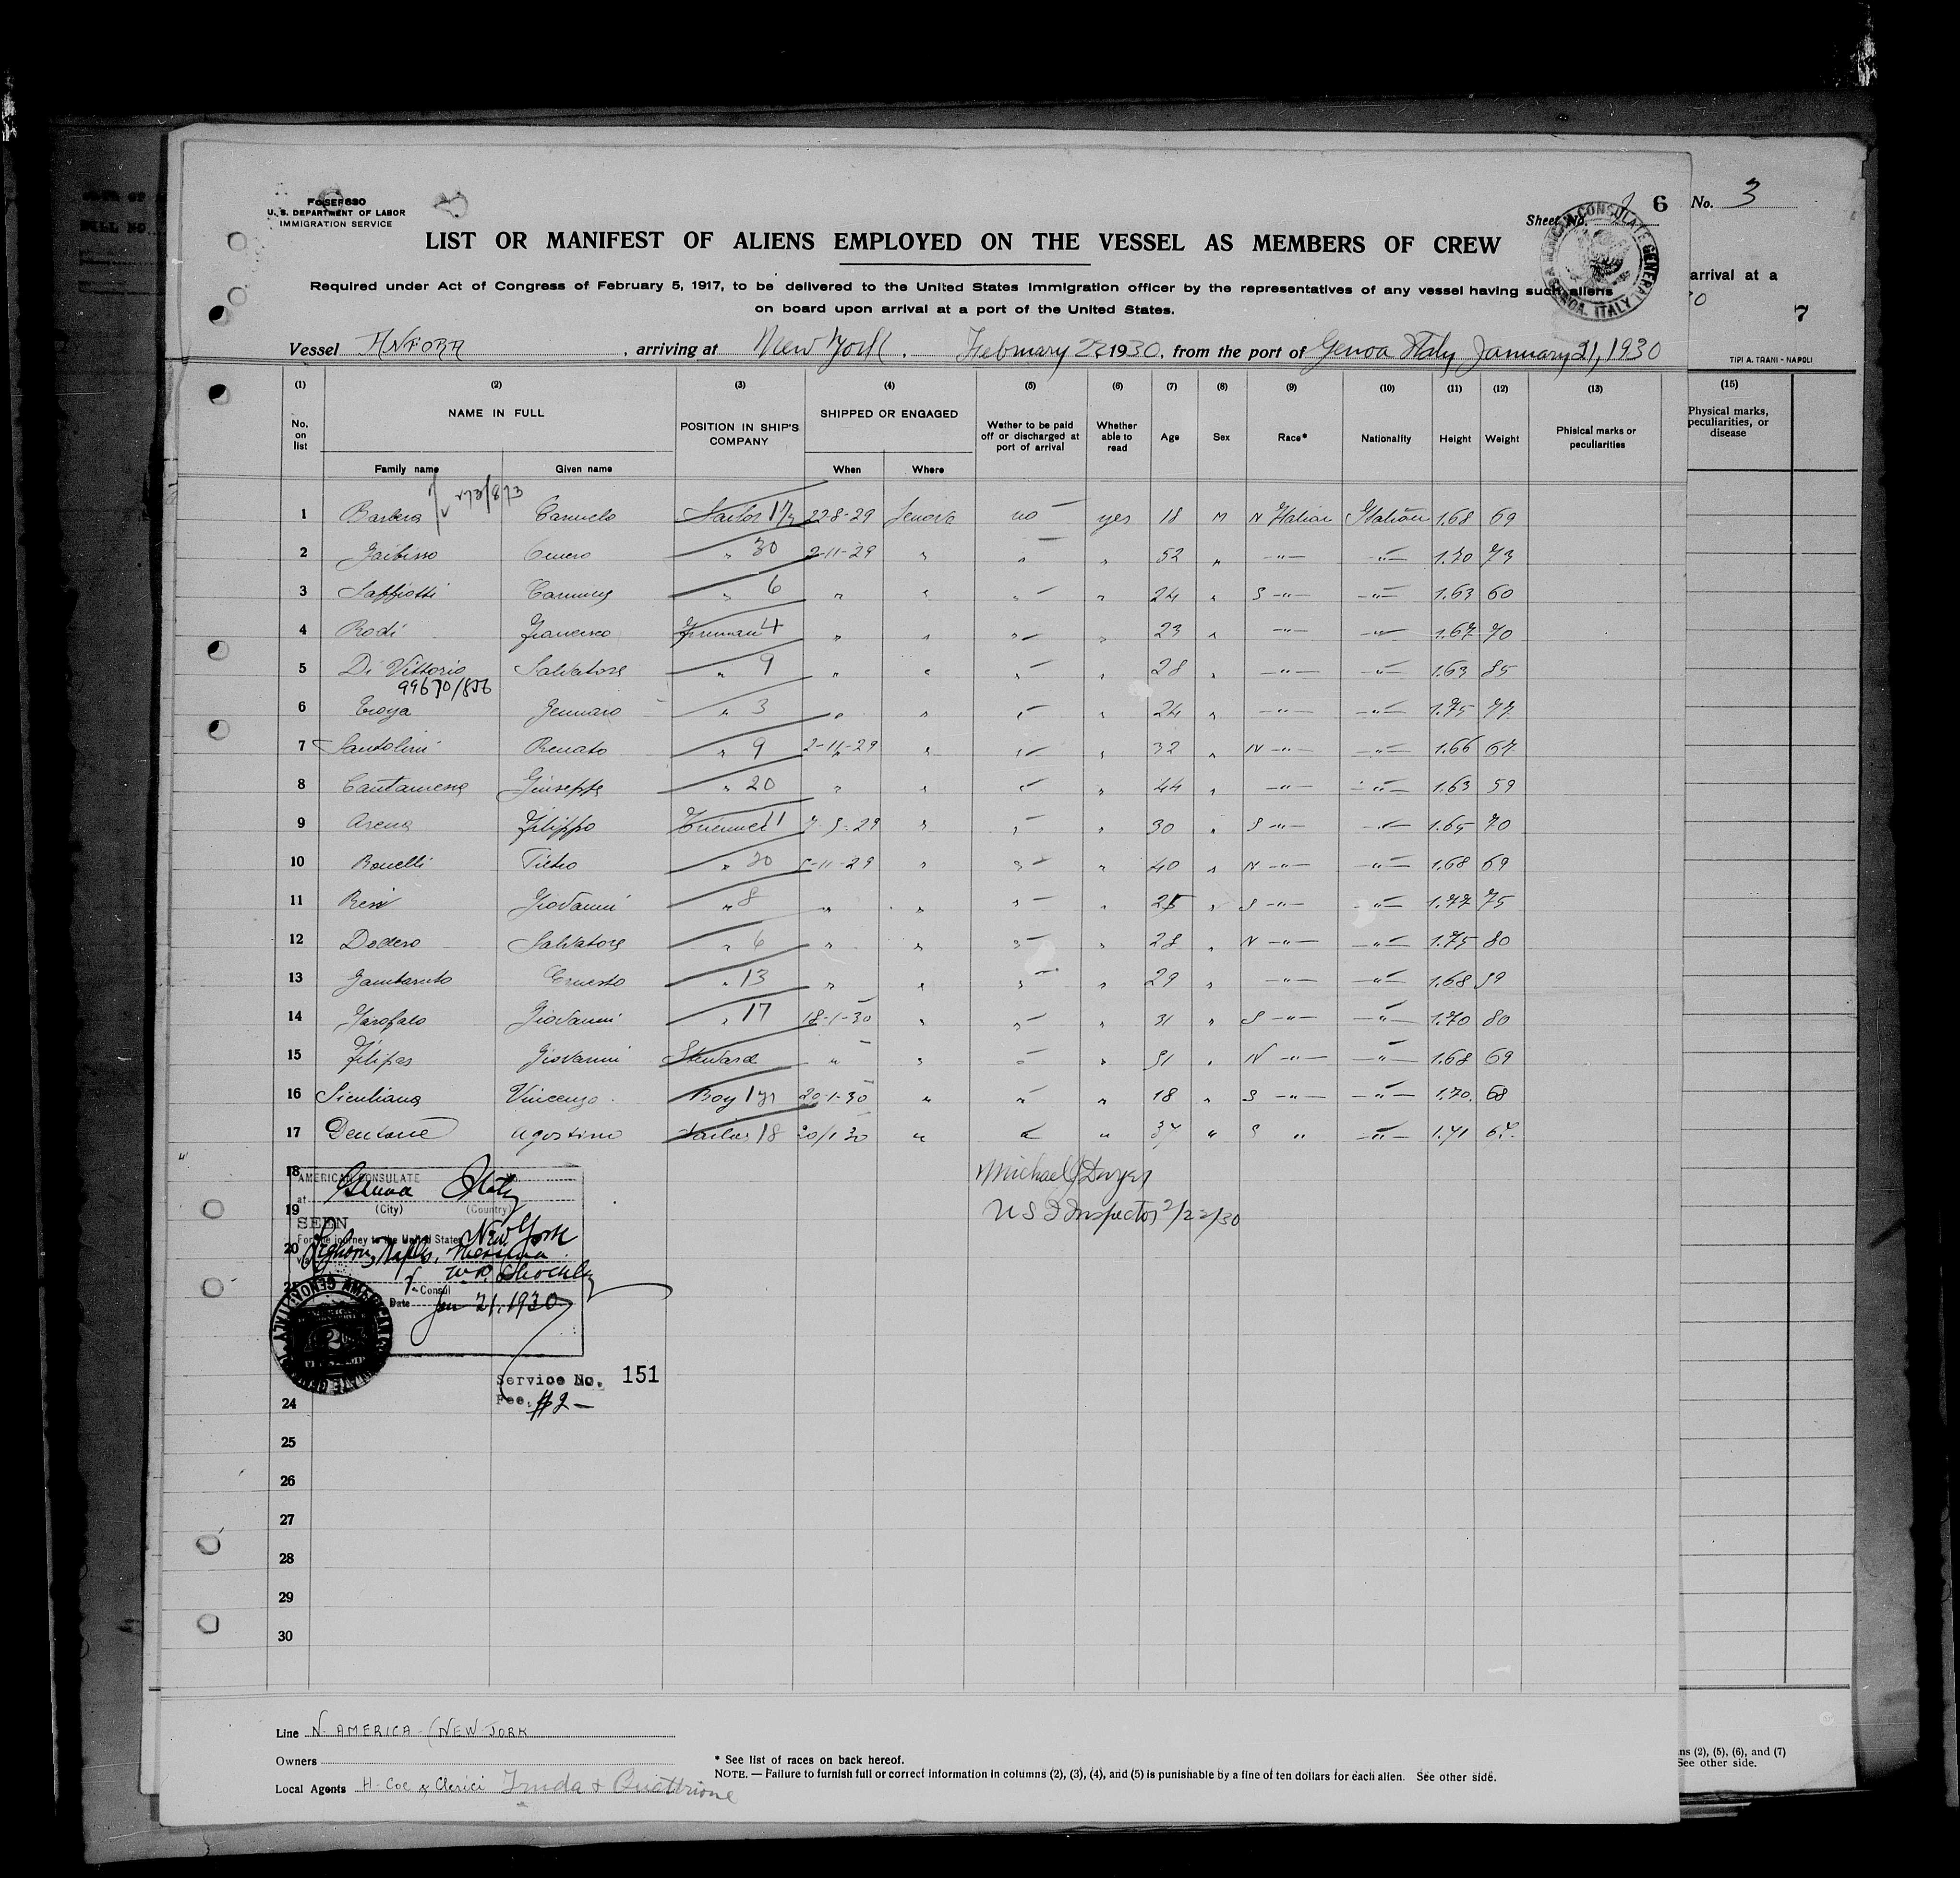 FOSEP630
U. S. DEPARTMENT OF LABOR
IMMIGRATION SERVICE
Sheet No. 6
No. 3
LIST OR MANIFEST OF ALIENS EMPLOYED ON THE VESSEL AS MEMBERS OF CREW
AMERICAN CONSULATE GENERAL GENOA, ITALY
Required under Act of Congress of February 5, 1917, to be delivered to the United States Immigration officer by the representatives of any vessel having such aliens
on board upon arrival at a port of the United States.
arrival at a
7
Vessel ANFORA, arriving at New York. February 22 1930, from the port of Genoa Italy January 21, 1930
TIPI A. TRANI - NAPOLI
(1) (2) (3) (4) (5) (6) (7) (8) (9) (10) (11) (12) (13) (15)
No. on list NAME IN FULL POSITION IN SHIP'S COMPANY SHIPPED OR ENGAGED Wether to be paid off or discharged at port of arrival Whether able to read Age Sex Race* Nationality Height Weight Phisical marks or peculiarities Physical marks, peculiarities, or disease
Family name Given name When Where
1 Barbera Carmelo Sailor 22-8-29 Genova no yes 18 M N Italian Italian 1.68 69
2 Gaibisso " 30 2-11-29 " " " 52 " -"- -"- 1.70 73
3 Saffiotti " 6 " " " " 24 " S -"- -"- 1.63 60
4 Rodi Francesco Fireman 4 " " " " 23 " -"- -"- 1.67 70
5 Di Vittorio Salvatore " 9 " " " " 28 " -"- -"- 1.63 85
99670/876
6 Troya Gennaro " 3 " " " " 24 " -"- -"- 1.75 77
7 Santolini Renato " 9 2-11-29 " " " 32 " N -"- -"- 1.66 67
8 Cantamessa Giuseppe " 20 " " " " 44 " -"- -"- 1.63 59
9 Arena Filippo 29 " " " 30 " S -"- -"- 1.65 70
10 Bonelli Pietro " 20 -11-29 " " " 40 " N -"- -"- 1.68 69
11 Giovanni " 8 " " " " 25 " S -"- -"- 1.77 75
12 Dodero Salvatore " 6 " " " " 28 " N -"- -"- 1.75 80
13 Gambaruto Ernesto " 13 " " " " 29 " -"- -"- 1.68 59
14 Garofalo Giovanni " 17 18-1-30 " " " 31 " S -"- -"- 1.70 80
15 Giovanni Steward " " " " 51 " N -"- -"- 1.68 69
16 Siculiana Vincenzo Boy 1 yr 20-1-30 " " " 18 " S -"- -"- 1.70 68
17 Dentone Agostino Sailor 18 20/1 30 " " " 37 " S " -"- 1.71
18 Michael J Dwyer
19 U S I Inspector 2/22/30
AMERICAN CONSULATE
at Genoa Italy
(City) (Country)
SEEN
For the journey to the United States New York
20 via Leghorn, Naples, Messina
W. P. Shockley
V. Consul
Date Jan 21, 1930
Service No. 151
Fee. $2-
24
25
26
27
28
29
30
Line N. AMERICA - (NEW-JORK
Owners
* See list of races on back hereof.
NOTE. — Failure to furnish full or correct information in columns (2), (3), (4), and (5) is punishable by a fine of ten dollars for each alien. See other side.
Local Agents H. Coe & Clerici
ns (2), (5), (6), and (7)
See other side.